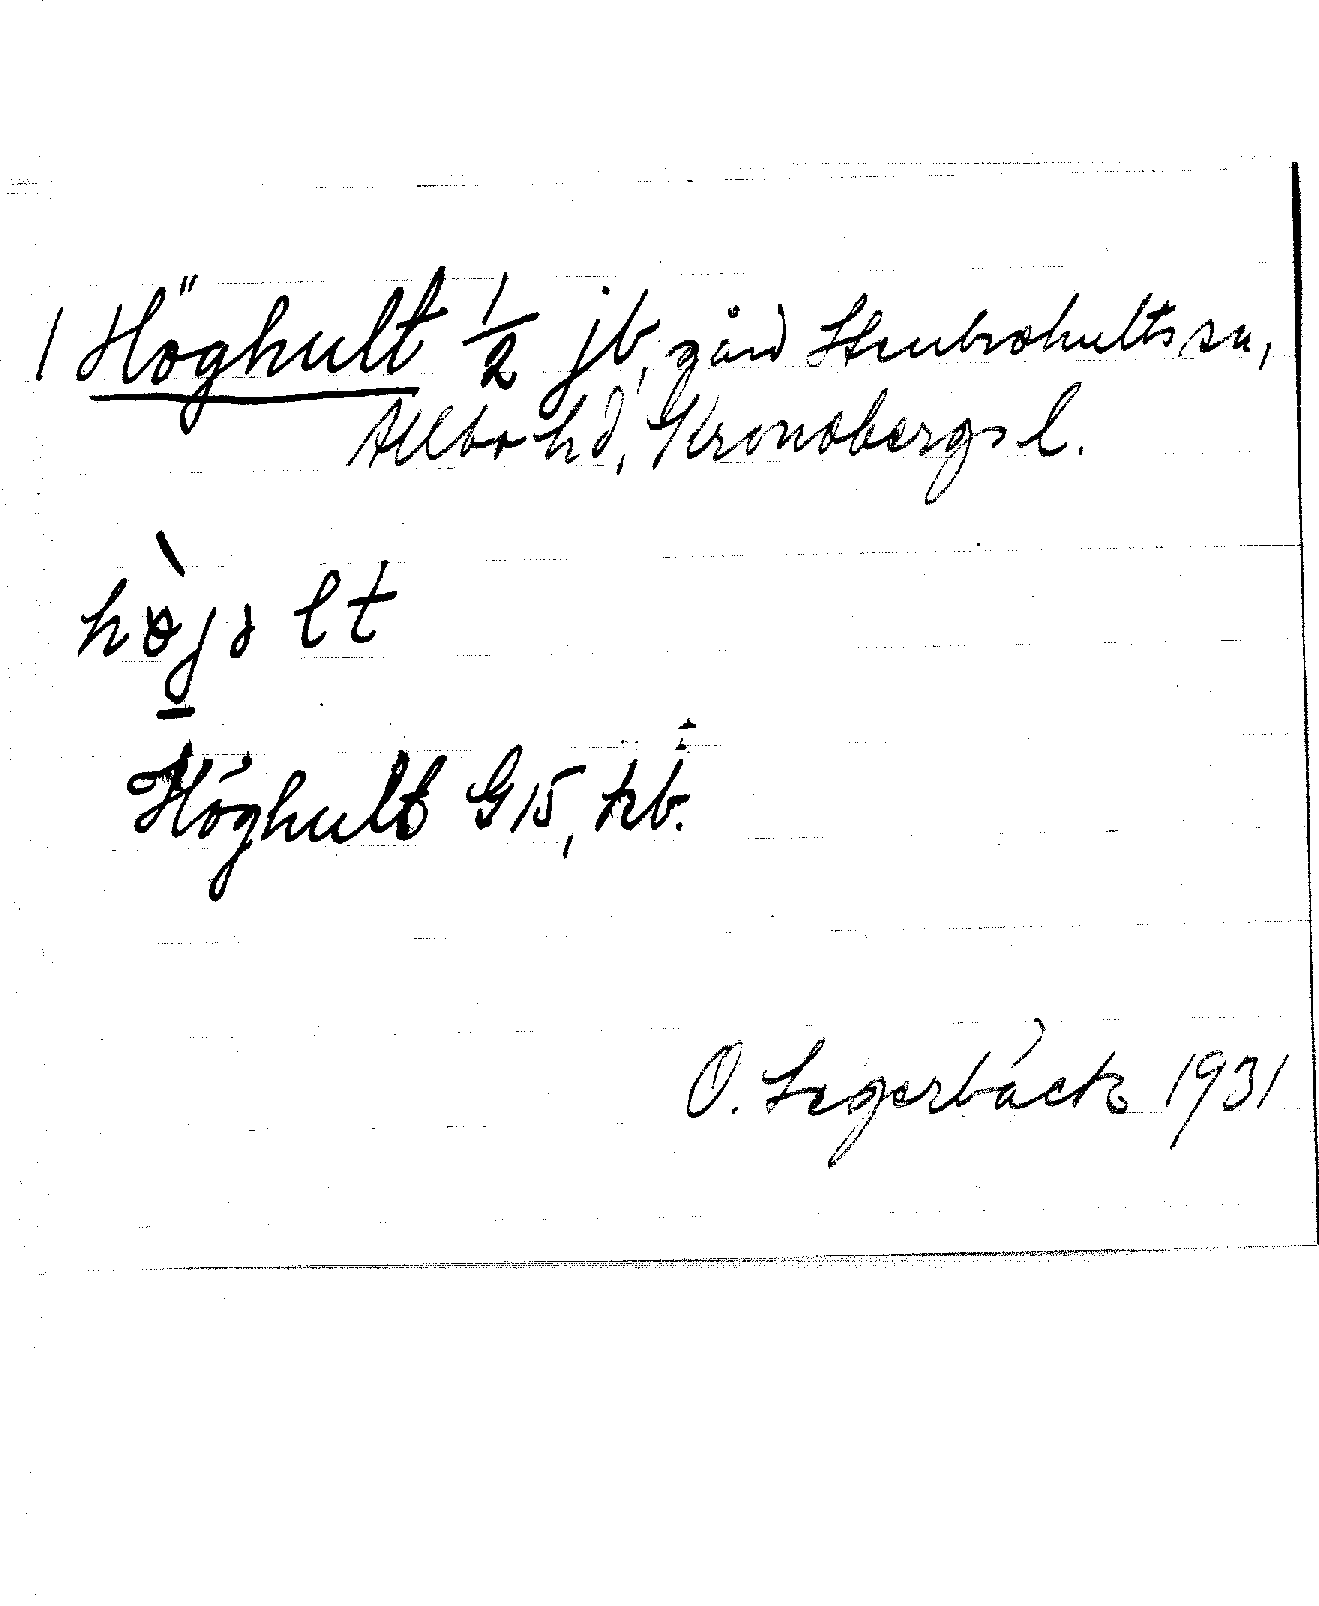 1 Höghult 1/2 jb, gård Stenbrohults sn,
Allbo hd, Kronobergs l.
Höghult G15, kb.
O. Segerbäck 1931